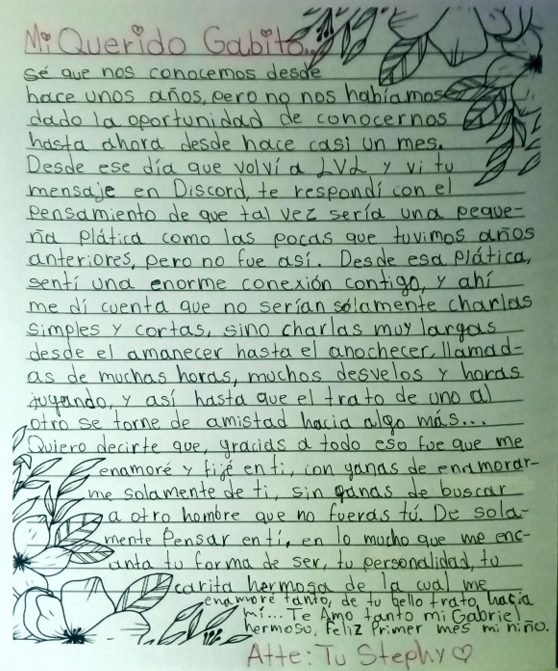 Mi Querido Gabito...
Sé que nos conocemos desde
hace unos años, pero no nos habíamos
dado la oportunidad de conocernos
hasta ahora desde hace casi un mes.
Desde ese día que volví a LVL y vi tu
mensaje en Discord, te respondí con el
pensamiento de que tal vez sería una peque-
ña plática como las pocas que tuvimos años
anteriores, pero no fue así. Desde esa plática,
sentí una enorme conexión contigo, y ahí
me dí cuenta que no serían sólamente charlas
simples y cortas, sino charlas muy largas
desde el amanecer hasta el anochecer, llamad-
as de muchas horas, muchos desvelos y horas
jugando, y así hasta que el trato de uno al
otro se torne de amistad hacia algo más...
Quiero decirte que, gracias a todo eso fue que me
enamoré y fijé en ti, con ganas de enamorar-
me solamente de ti, sin ganas de buscar
a otro hombre que no fueras tú. De sola-
mente Pensar en tí, en lo mucho que me enc-
anta tu forma de ser, tu personalidad, tu
carita hermosa de la cual me
enamoré tanto, de tu bello trato hacia
mí... Te Amo tanto mi Gabriel
hermoso, Feliz Primer mes mi niño.
Atte: Tu Stephy♡